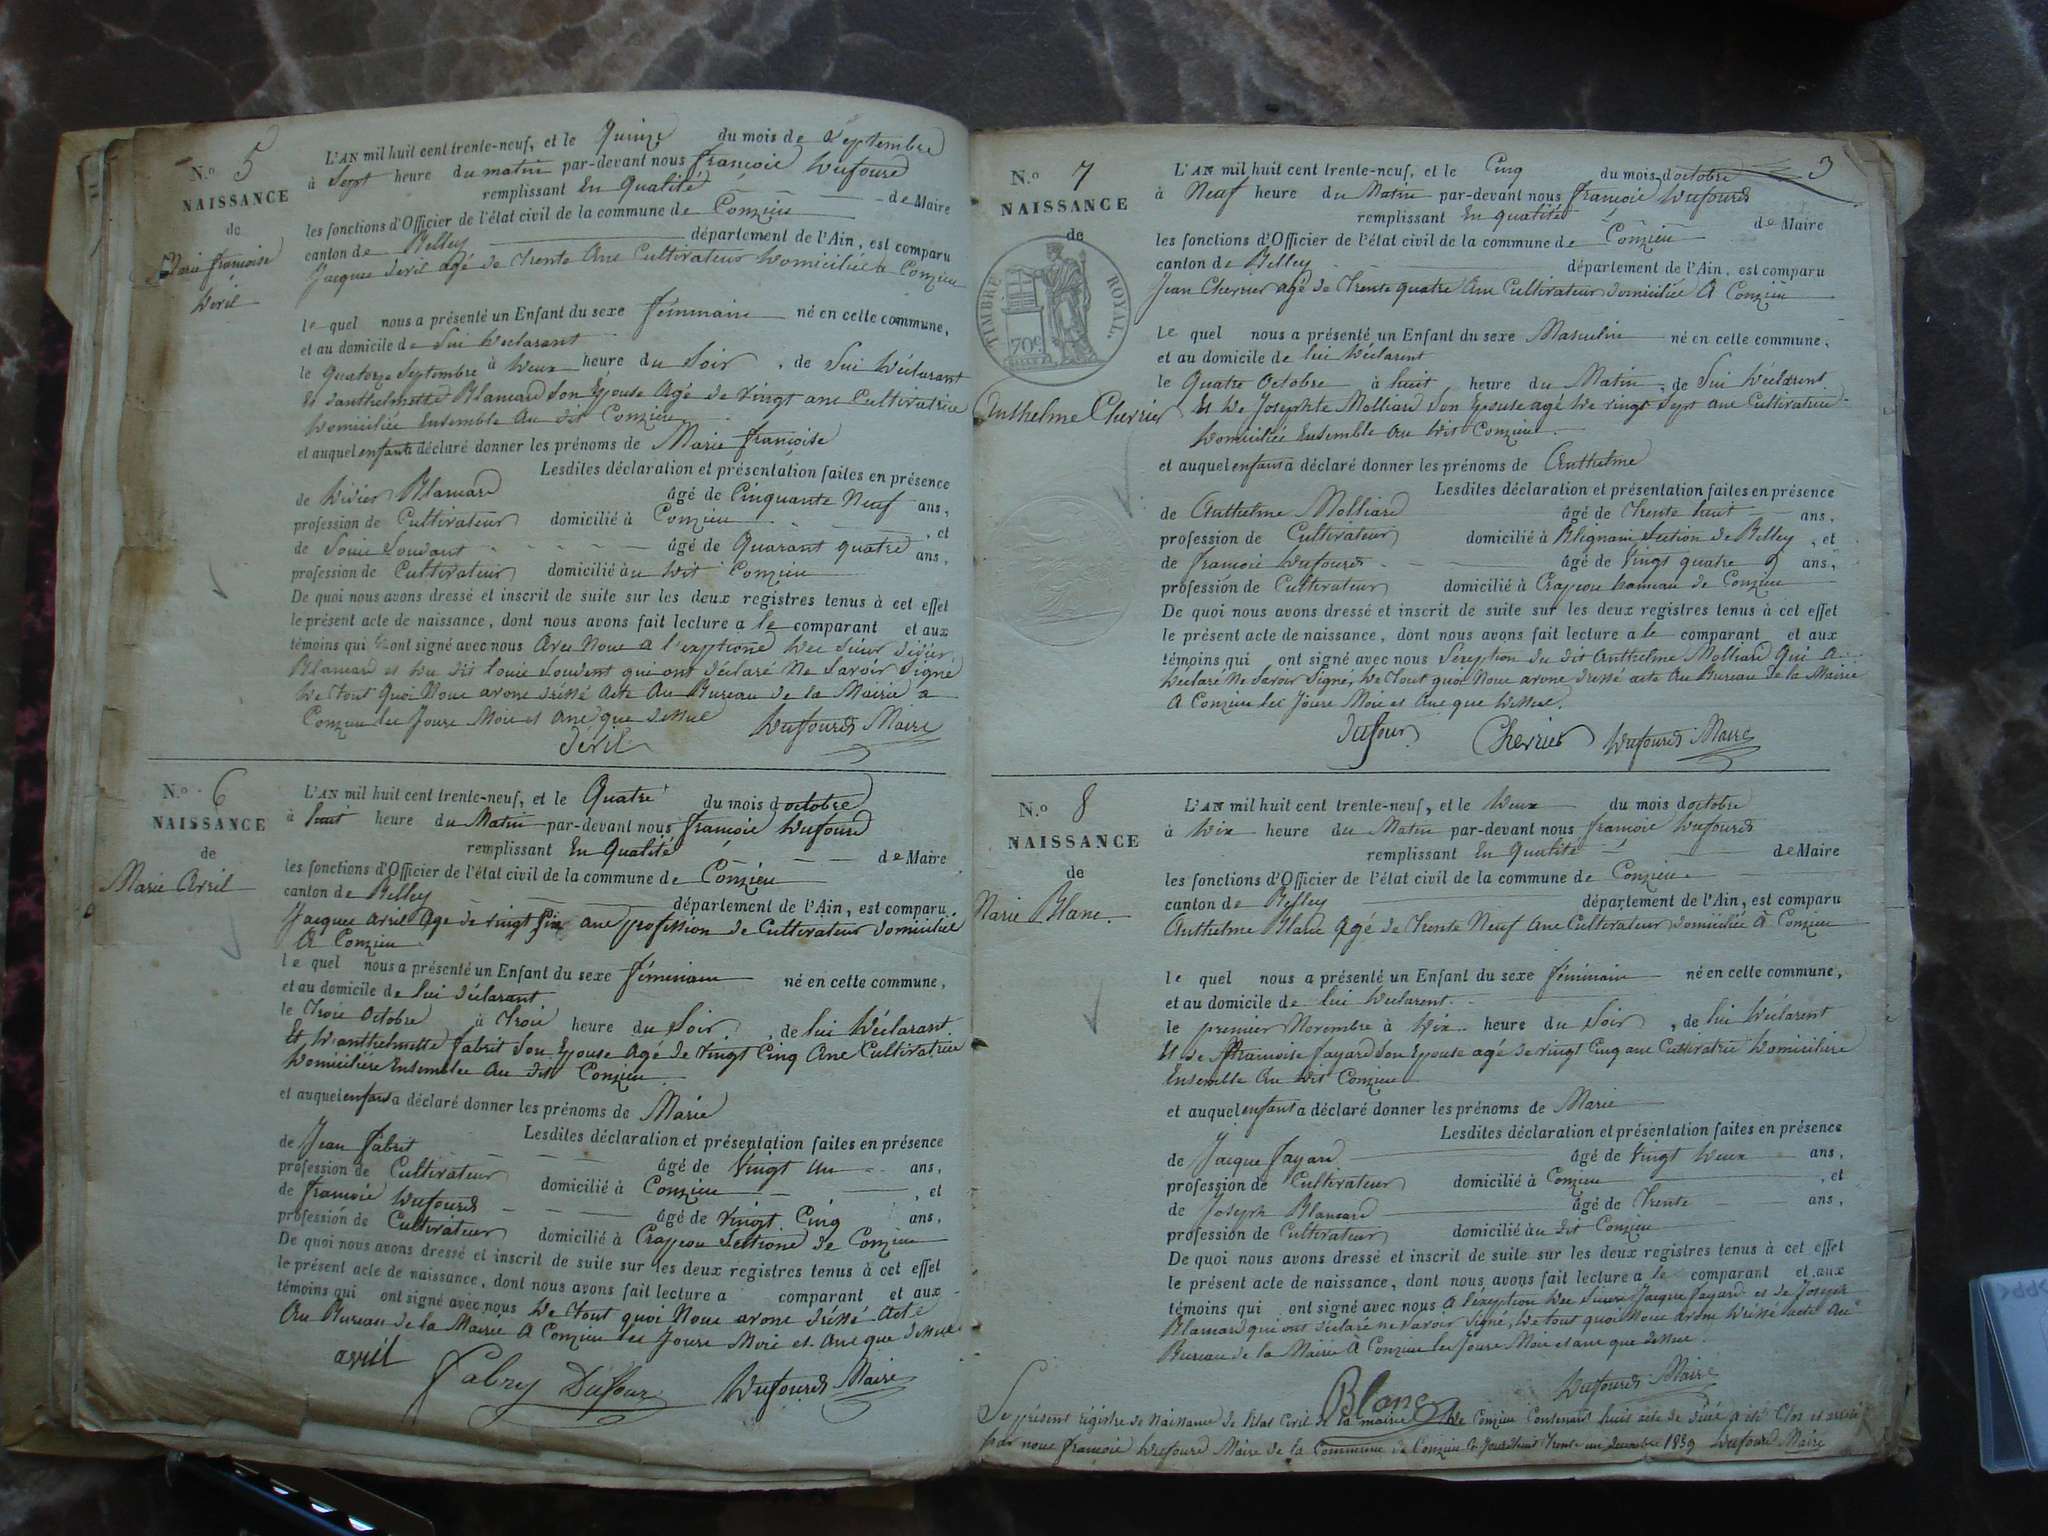 N.º 5
NAISSANCE
de
Marie françoise
Deril
L'AN mil huit cent trente-neuf, et le Quinze du mois de Septembre
à Sept heure du matin par-devant nous françois Dufourd
remplissant En Qualité de Maire
les fonctions d'Officier de l'état civil de la commune de Conzieu
canton de Belley département de l'Ain, est comparu
Jacques deril agé de trente Ans Cultivateur Domiciliée a Conzieu
le quel nous a présenté un Enfant du sexe féminain né en cette commune,
et au domicile de Lui Déclarant
le Quatorze Septembre à Deux heure du Soir, de Lui Déclarant
Et danthelmette Blanard Son Epouse Agé de vingt ans Cultivatrice
Domiciliée Ensemble Au dit Conzieu
et auquel enfant a déclaré donner les prénoms de Marie françoise
Lesdites déclaration et présentation faites en présence
de Didier Blanard âgé de Cinquante Neuf ans,
profession de Cultivateur domicilié à Conzieu, et
de Louis Soudant âgé de Quarant quatre ans,
profession de Cultivateur domicilié au Dit Conzieu
De quoi nous avons dressé et inscrit de suite sur les deux registres tenus à cet effet
le présent acte de naissance, dont nous avons fait lecture a le comparant et aux
témoins qui ont signé avec nous Avec Nous a l'exptione Des Sieur Didier
Blanard et Du dit Louis Soudant qui ont déclaré Ne Savoir Signé
De tout Quoi Nous avons dréssé Acte Au Bureau de la Mairie a
Conzieu les Jours Mois et Ans que dessus Dufourd Maire
déril
N.º 6
NAISSANCE
de
Marie Avril
L'AN mil huit cent trente-neuf, et le Quatre du mois d octobre
à huit heure du Matin par-devant nous françois Dufourd
remplissant En Qualité de Maire
les fonctions d'Officier de l'état civil de la commune de Conzieu
canton de Belley département de l'Ain, est comparu
Jacques avril Age de vingt Six ans profession de Cultivateur domicilié
A Conzieu
le quel nous a présenté un Enfant du sexe féminain né en cette commune,
et au domicile de lui déclarant
le Trois Octobre à Trois heure du Soir, de lui Déclarant
Et Danthelmette fabrit Son Epouse Agé de Vingt Cinq Ans Cultivatrice
Domiciliére Ensemblee Au dit Conzieu
et auquel enfant a déclaré donner les prénoms de Marie
Lesdites déclaration et présentation faites en présence
de Jean fabrit âgé de Vingt un ans,
profession de Cultivateur domicilié à Conzieu, et
de françois Dufourd âgé de Vingt Cinq ans,
profession de Cultivateur domicilié à Crapeou Sectione de Conzieu
De quoi nous avons dressé et inscrit de suite sur les deux registres tenus à cet effet
le présent acte de naissance, dont nous avons fait lecture a comparant et aux
témoins qui ont signé avec nous De Tout quoi Nous avons dréssé Acte
Au Bureau de la Mairie A Conzieu les Jours Mois et Ans que dessus
avril Fabry Dufour Dufourd Maire
3
N.º 7
NAISSANCE
de
TIMBRE ROYAL.
70c
Anthelme Cherrier
L'AN mil huit cent trente-neuf, et le Cinq du mois d octobre
à Neuf heure du Matin par-devant nous françois Dufourd
remplissant En qualité de Maire
les fonctions d'Officier de l'état civil de la commune de Conzieu
canton de Belley département de l'Ain, est comparu
Jean Cherrier agé de Trente quatre Ans Cultivateur domiciliée A Conzieu
Le quel nous a présenté un Enfant du sexe Masculin né en cette commune,
et au domicile de lui Déclarent
le Quatre Octobre à huit heure du Matin, de Lui Déclarent
Et De Josephte Molliard Son Epouse agé De vingt Sept ans Cultivatrice
Domiciliée Ensemble Au Dit Conzieu
et auquel enfant a déclaré donner les prénoms de Anthelme
Lesdites déclaration et présentation faites en présence
de Anthelme Molliard âgé de Trente huit ans,
profession de Cultivateur domicilié à Blignain Section de Belley, et
de françois Dufourd âgé de Vingt quatre ans,
profession de Cultivateur domicilié à Crapeou hameau de Conzieu
De quoi nous avons dressé et inscrit de suite sur les deux registres tenus à cet effet
le présent acte de naissance, dont nous avons fait lecture a le comparant et aux
témoins qui ont signé avec nous Séxeption du dit Anthelme Molliard Qui A
Déclaré Ne Savoir Signé, De Tout quoi Nous avons dressé acte Au Bureau de la Mairie
A Conzieu les Jours Mois et Ans que Dessus.
dufour Cherrier Dufourd Maire
N.º 8
NAISSANCE
de
Marie Blanc.
L'AN mil huit cent trente-neuf, et le Deux du mois d octobre
à Dix heure du Matin par-devant nous françois Dufourd
remplissant En Qualité de Maire
les fonctions d'Officier de l'état civil de la commune de Conzieu
canton de Belley département de l'Ain, est comparu
Anthelme Blanc Agé de Trente Neuf Ans Cultivateur domiciliée A Conzieu
le quel nous a présenté un Enfant du sexe féminain né en cette commune,
et au domicile de lui Déclarent
le premier Novembre à Dix heure du Soir, de lui Déclarent
Et de françoise fayard Son Epouse agé de vingt Cinq ans Cultivatrice Domiciliére
Ensemble Au Dit Conzieu
et auquel enfant a déclaré donner les prénoms de Marie
Lesdites déclaration et présentation faites en présence
de Jacque fayard âgé de Vingt Deux ans,
profession de Cultivateur domicilié à Conzieu, et
de Joseph Blanard âgé de Trente ans,
profession de Cultivateur domicilié au dit Conzieu
De quoi nous avons dressé et inscrit de suite sur les deux registres tenus à cet effet
le présent acte de naissance, dont nous avons fait lecture a le comparant et aux
témoins qui ont signé avec nous A l'éxeption Des Sieurs Jacque fayard et de Joseph
Blanard qui ont déclaré ne savoir Signé, De tout quoi Nous avons Dréssé acte Au
Bureau de la Mairie A Conzieu les Jours Mois et ans que dessus.
Blanc Dufourd Maire
Le présent régistre de Naissance de l'état Civil de la mairie De Conzieu Contenant huit acte a été Clos et arrêté
par nous françois Dufourd Maire de la Commune de Conzieu Jourdhui Trente un décembre 1839 Dufourd Maire